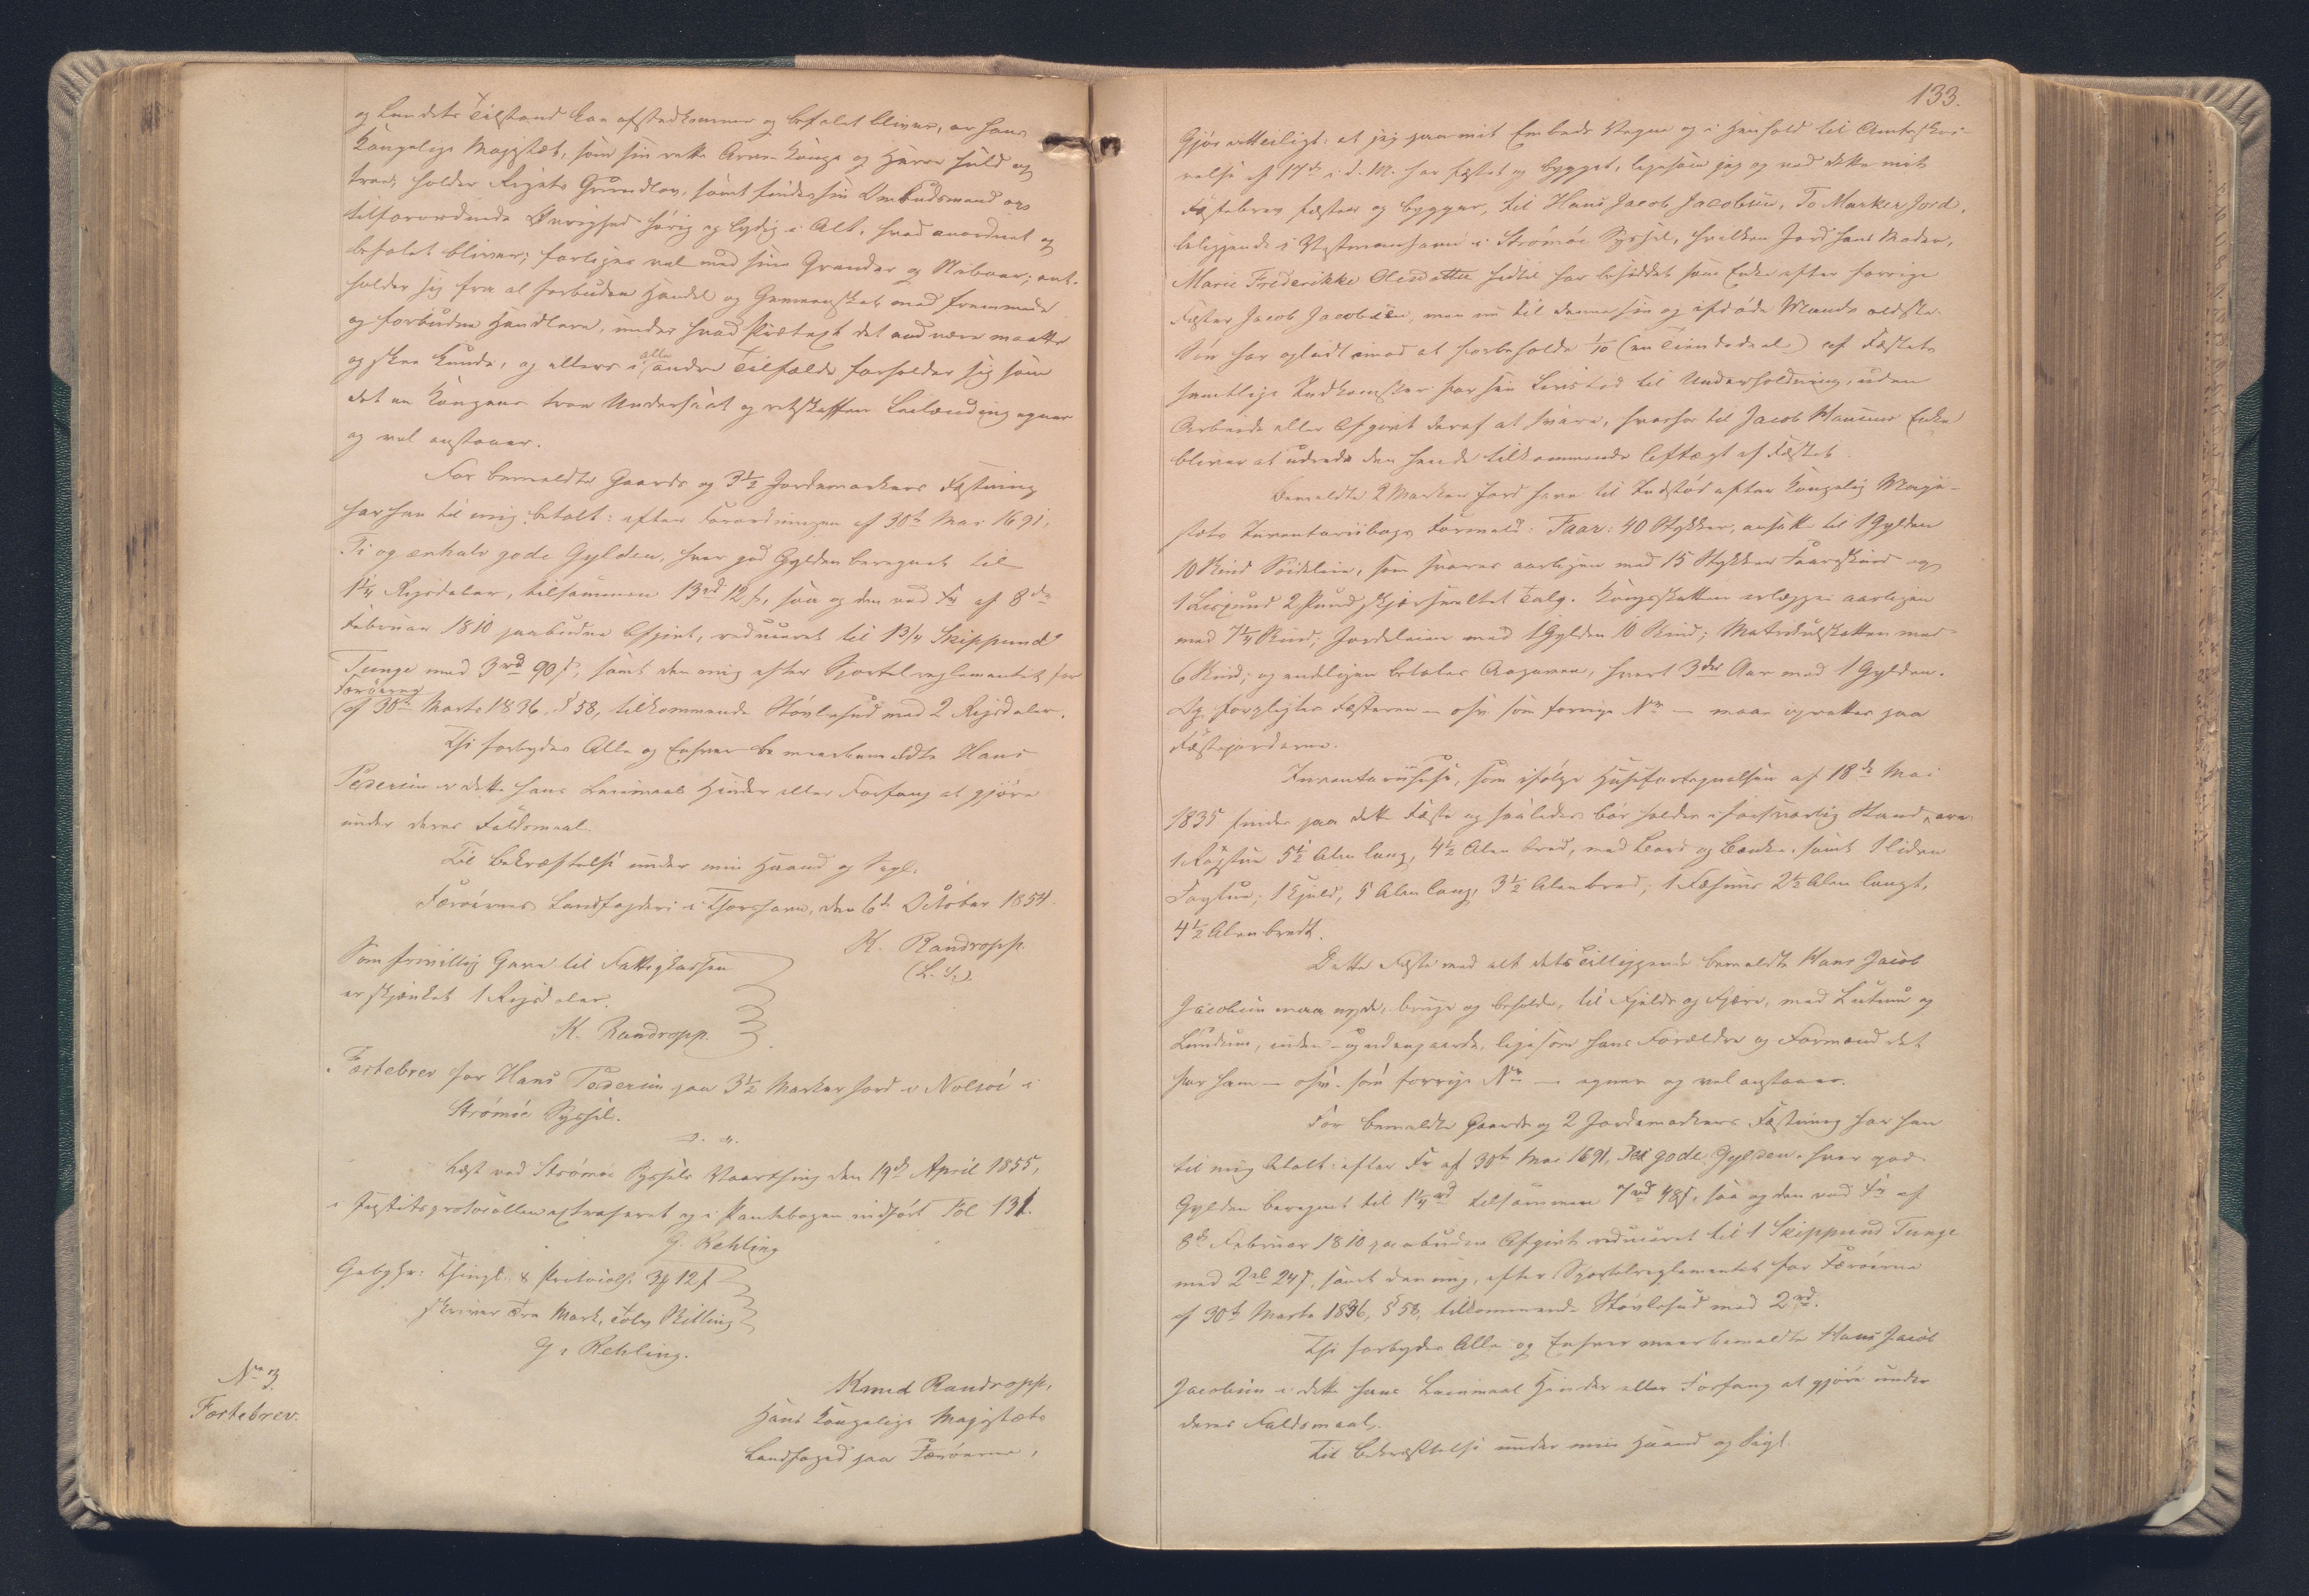 og Landets Tilstand kan afstedkommes og befalet bliver, er Hans
Kongelige Majestæt, som sin rette Arve-Konge og Herre huld og
troe, holder Rigets Grundlov, samt finder sin Ombudsmand og
tilforordnede Øvrighed hørig og lydig i Alt, hvad anordnet og
befalet bliver; forliges vel med sine Grander og Naboer; ent-
holder sig fra al forbuden Handel og Gemeenskab med fremmede
og forbudne Handlere, under hvad Prætext det end være maatte
og skee kunde, og ellers i alle andre Tilfælde forholder sig som
det en Kongens troe Undersaat og retskaffen Leilænding egner
og vel anstaaer.
For bemeldte Gaards og 3½ Jordemarkers Fæstning
har han til mig betalt: efter Forordningen af 30te Mai 1691,
Ti og enhalv gode Gylden, hver god Gylden beregnet til
1¼ Rigsdaler, tilsammen 13rd 12s, saa og den ved Fr af 8de
Februar 1810 paabudne Afgivt, reduceret til 1¾ Skippund
Tunge med 3rd 90s, samt den mig efter Sportelreglementet for
Færöerne
af 30te Marts 1836, § 58, tilkommende Støvlehud med 2 Rigsdaler.
Thi forbydes Alle og Enhver bemeerbemeldte Hans
Pedersen i dette hans Leiemaal Hinder eller Forfang at gjöre
under deres Faldsmaal.
Til Bekræftelse under min Haand og Segl.
Færöernes Landfogderi i Thorshavn, den 6te October 1854.
K. Randropp.
(L. S.)
Som frivillig Gave til Fattigkassen
er skjænket 1 Rigsdaler.
K. Randropp.
Fæstebrev for Hans Pedersen paa 3½ Marker Jord i Nolsöe i
Strömöe Syssel.
Læst ved Strömöe Syssels Vaarthing den 19de April 1855,
i Justitsprotocollen extraheret og i Pantebogen indfört Fol 131.
G. Rehling
Gebyhr: Thingl. & Protocoll. 3 12s
skriver Tre Mark, tolv Skilling
G. Rehling.
No 3.
Fæstebrev.
Knud Randropp,
Hans Kongelige Majestæts
Landfoged paa Færöerne,
133.
Gjör vitterligt: at jeg paa mit Embeds Vegne og i Henhold til Amtets Skri-
velse af 17de i d. M. har fæstet og bygget, ligesom jeg og ved dette mit
Fæstebrev fæster og bygger, til Hans Jacob Jacobsen, To Marker Jord,
beliggende i Vestmanhavn i Strömöe Syssel, hvilken Jord hans Moder,
Marie Frederikke Olesdatter hidtil har besiddet som Enke efter forrige
Fæster Jacob Jacobsen, men nu til denne sin og afdöde Mands ældste
Sön har opladt imod at forbeholde 1/10 (en Tiendedeel) af Fæstets
samtlige Indkomster for sin Livstid til Underholdning, uden
Arbeide eller Afgivt deraf at svare, hvorhos til Jacob Hansens Enke
bliver at udrede den hende tilkommende Aftægt af Fæstet.
Bemeldte 2 Marker Jord have til Indstöd efter Kongelig Maje-
stæts Inventariibogs Formeld: Faar: 40 Stykker, ansatte til 1 Gylden
10 Skind Smörleie, som svares aarligen med 15 Stykker Faareskind og
1 Lispund 2 Pund skjærsmeltet Talg. Kongsskatten erlægges aarligen
med 7¼ Skind; Jordeleien med 1 Gylden 10 Skind; Matrikulskatten med
6 Skind; og endeligen betales Aagaven, hvert 3die Aar med 1 Gylden.
Og forpligtes Fæsteren — osv som forrige No — maae oprettes paa
Fæstejorderne.
Inventariihuse, som ifölge Husefortegnelsen af 18de Mai
1835 findes paa dette Fæste og saaledes bör holdes i forsvarlig Stand, ere
1 Rögstue 5½ Alen lang, 4½ Alen bred, med Bord og Bænke, samt 1 liden
Forstue; 1 Hjald, 5 Alen lang, 3½ Alen bred; 1 Fæhuus 2½ Alen langt,
4½ Alen bredt.
Dette Fæste med alt dets Tilliggende bemeldte Hans Jacob
Jacobsen maa nyde, bruge og beholde, til Fjelds og Fjære, med Luttum og
Lundum, inden- og udengaards, ligesom hans Forældre og Formænd det
för ham — osv. som forrige No — egner og vel anstaaer.
For bemeldte Gaards og 2 Jordemarkers Fæstning har han
til mig betalt: efter Fr af 30te Mai 1691, Sex gode Gylden, hver god
Gylden beregnet til 1¼rd tilsammen 7rd 48s, saa og den ved Fr af
8de Februar 1810 paabudne Afgivt reduceret til 1 Skippund Tunge
med 2rd 24s, samt den mig, efter Sportelreglementet for Færöerne
af 30te Marts 1836, § 58, tilkommende Støvlehud med 2rd.
Thi forbydes Alle og Enhver meerbemeldte Hans Jacob
Jacobsen i dette hans Leiemaal Hinder eller Forfang at gjöre under
deres Faldsmaal.
Til Bekræftelse under min Haand og Segl.